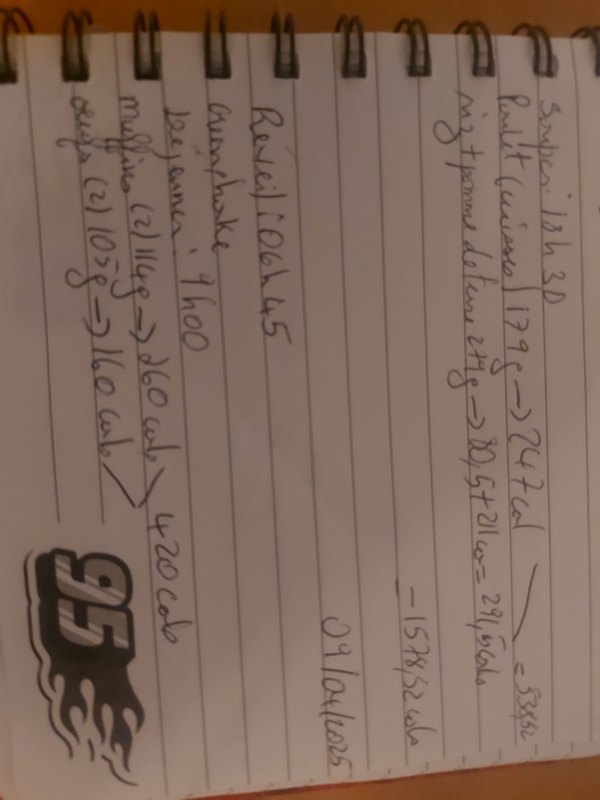 Souper: 18h30
Poulet (cuisses) 179g → 247 cal
riz + pomme de terre 274g → 80,5 + 211 cal = 291,5 cals
= 538,52
- 1578,52 cals
09/04/2025
Réveil: 06h45
Déjeuner: 9h00
muffins (2) 114g → 260 cals
420 cals
oeufs (2) 105g → 160 cals
95